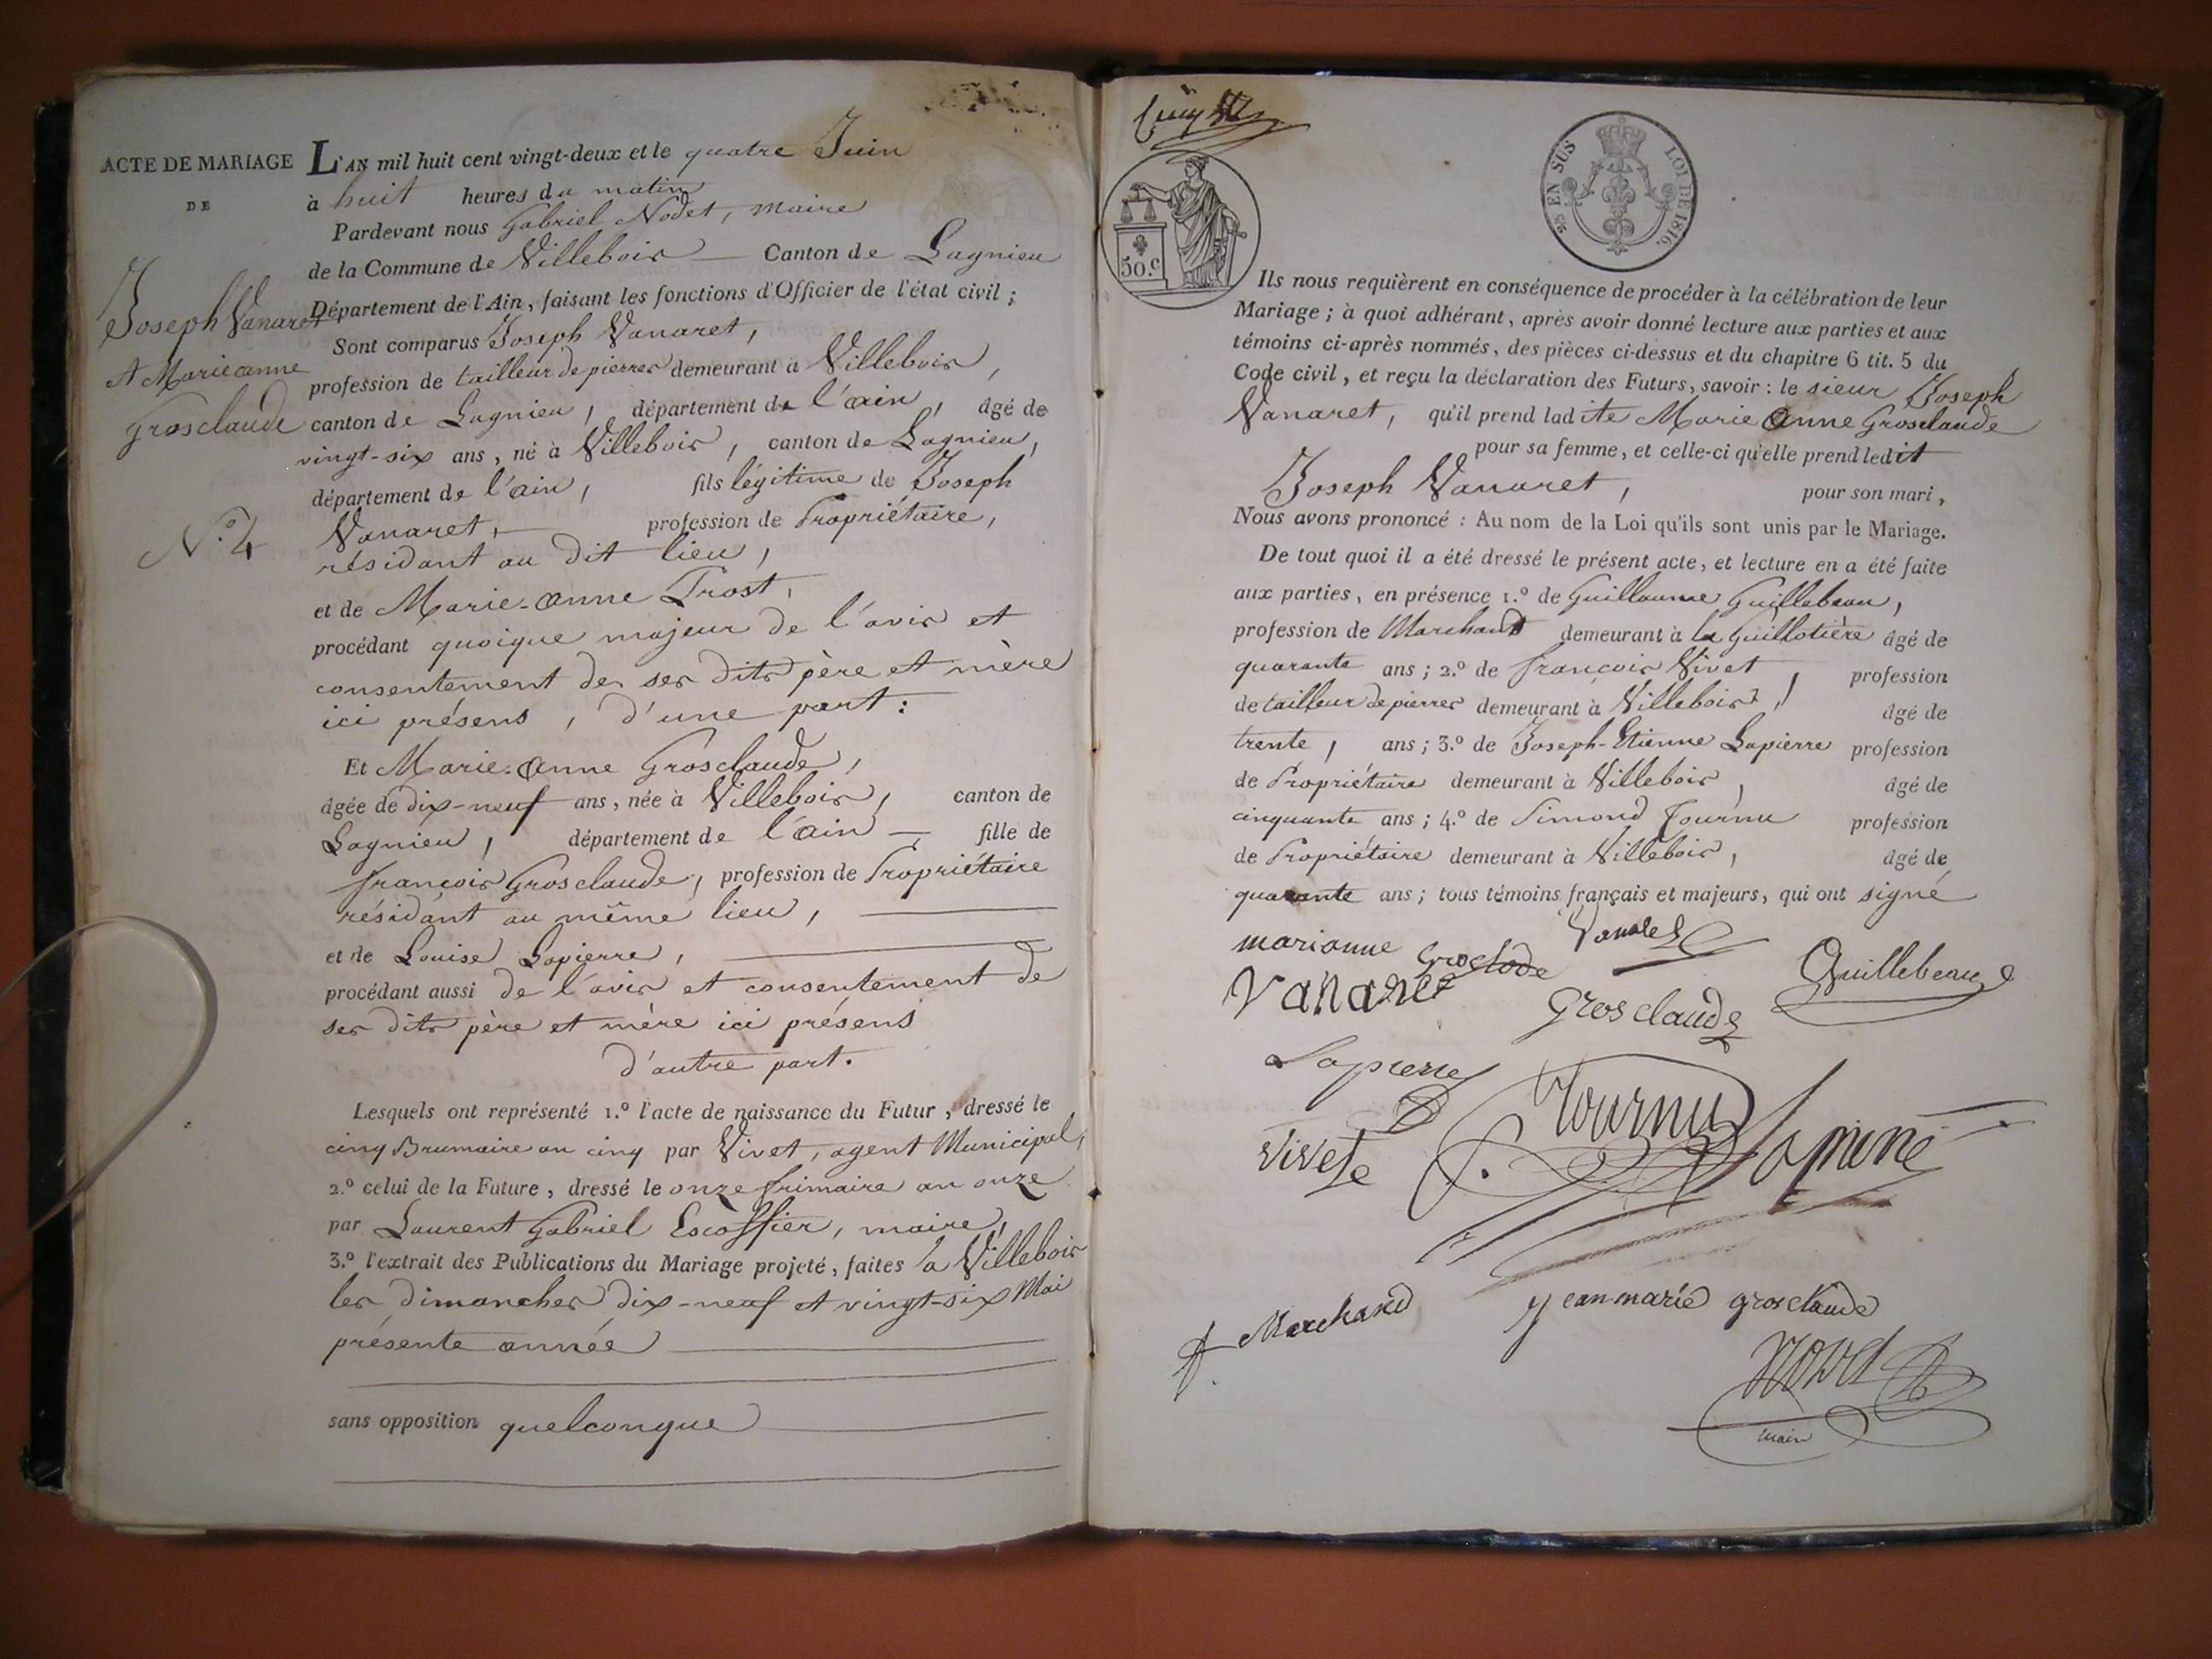 ACTE DE MARIAGE
DE
Joseph Vanaret
et Marieanne
Grosclaude
N.º 4
L'AN mil huit cent vingt-deux et le quatre Juin
à huit heures du matin
Pardevant nous Gabriel Nodet, maire
de la Commune de Villebois Canton de Lagnieu
Département de l'Ain, faisant les fonctions d'Officier de l'état civil ;
Sont comparus Joseph Vanaret,
profession de tailleur de pierres demeurant à Villebois,
canton de Lagnieu, département de l'ain, âgé de
vingt-six ans, né à Villebois, canton de Lagnieu,
département de l'ain, fils légitime de Joseph
Vanaret, profession de Propriétaire,
résidant au dit lieu,
et de Marie-anne Trost,
procédant quoique majeur de l'avis et
consentement de ses dits père et mère
ici présens, d'une part :
Et Marie-anne Grosclaude,
âgée de dix-neuf ans, née à Villebois, canton de
Lagnieu, département de l'ain fille de
françois Grosclaude, profession de Propriétaire
résidant au même lieu,
et de Louise Lapierre,
procédant aussi de l'avis et consentement de
ses dits père et mère ici présens
d'autre part.
Lesquels ont représenté 1.º l'acte de naissance du Futur, dressé le
cinq Brumaire an cinq par Vivet, agent Municipal,
2.º celui de la Future, dressé le onze frimaire an onze
par Laurent Gabriel Escoffier, maire,
3.º l'extrait des Publications du Mariage projeté, faites à Villebois
les dimanches dix-neuf et vingt-six Mai
présente année
sans opposition quelconque
50.c
25.e EN SUS LOI DE 1816.
Ils nous requièrent en conséquence de procéder à la célébration de leur
Mariage ; à quoi adhérant, après avoir donné lecture aux parties et aux
témoins ci-après nommés, des pièces ci-dessus et du chapitre 6 tit. 5 du
Code civil, et reçu la déclaration des Futurs, savoir : le sieur Joseph
Vanaret, qu'il prend ladite Marie anne Grosclaude
pour sa femme, et celle-ci qu'elle prend ledit
Joseph Vanaret, pour son mari,
Nous avons prononcé : Au nom de la Loi qu'ils sont unis par le Mariage.
De tout quoi il a été dressé le présent acte, et lecture en a été faite
aux parties, en présence 1.º de Guillaume Guillebeau,
profession de Marchand demeurant à la Guillotière âgé de
quarante ans ; 2.º de françois Vivet, profession
de tailleur de pierres demeurant à Villebois, âgé de
trente, ans ; 3.º de Joseph-Etienne Lapierre profession
de Propriétaire demeurant à Villebois, âgé de
cinquante ans ; 4.º de Simond Tournu profession
de Propriétaire demeurant à Villebois, âgé de
quarante ans ; tous témoins français et majeurs, qui ont signé
marianne Groclode
Vanaret
Guillebeau
Grosclaude
Lapierre
Tournu
Vivet
Marchand
jean-marie grosclaude
Nodet
maire